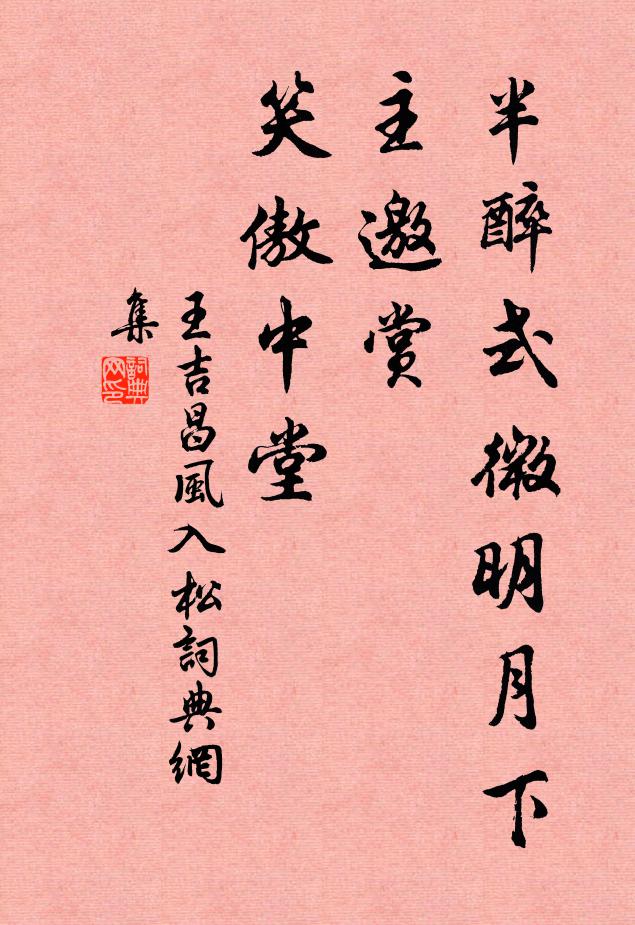 半醉式微明月下
主邀賞
笑傲中堂
王吉昌風入松詞典網
集
詞典
网印